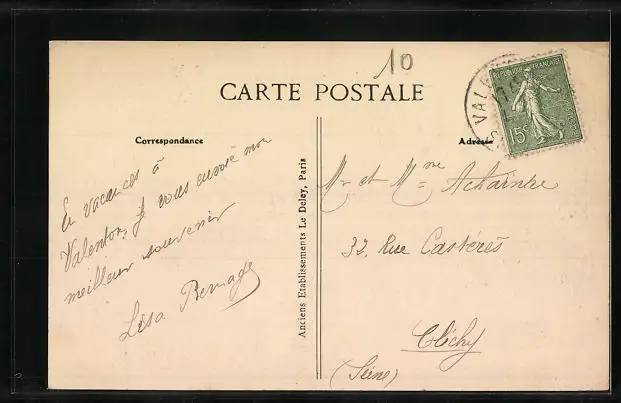 10
CARTE POSTALE
RÉPUBLIQUE FRANÇAISE
15c
VAL
Correspondance
Adresse
En vacances à
Valenton, je vous envoie mon
meilleur souvenir
Lisa Bernage
Anciens Etablissements Le Deley, Paris
Mr et Mme Achaintre
32, Rue Castérès
Clichy
(Seine)